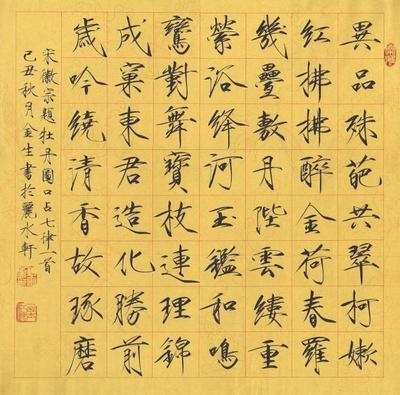 異品殊葩共翠柯嫩
紅拂拂醉金荷春羅
幾疊敷丹陛雲縷重
縈浴絳河玉鑑和鳴
鸞對舞寶枝連理錦
成窠東君造化勝前
歲吟繞清香故琢磨
宋徽宗題牡丹圖口占七律一首
己丑秋月金生書於麗水軒